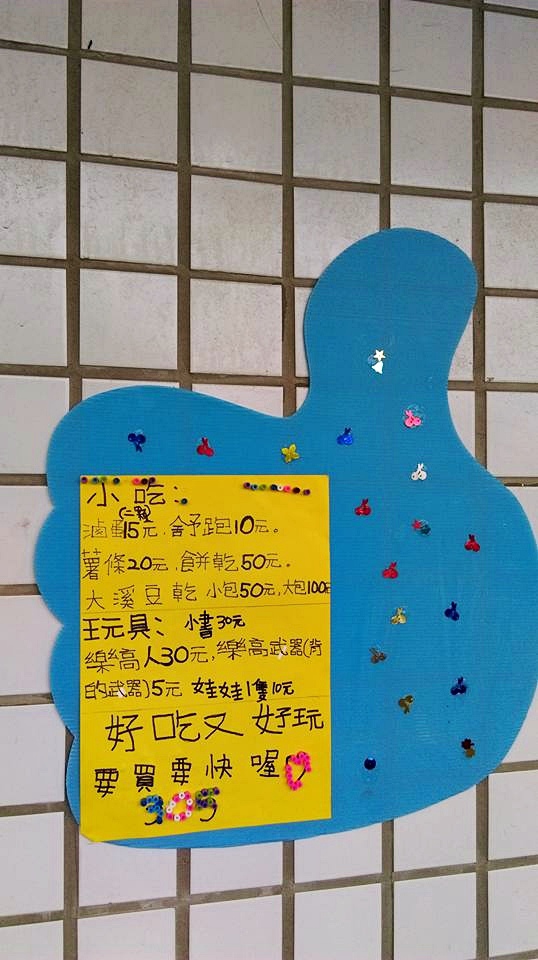 小吃：
(二顆)
滷蛋15元，舒跑10元。
薯條20元，餅乾50元。
大溪豆乾 小包50元，大包100元
玩具： 小書30元
樂高人30元，樂高武器(背
的武器)5元 娃娃1隻10元
好吃又好玩
要買要快喔
305